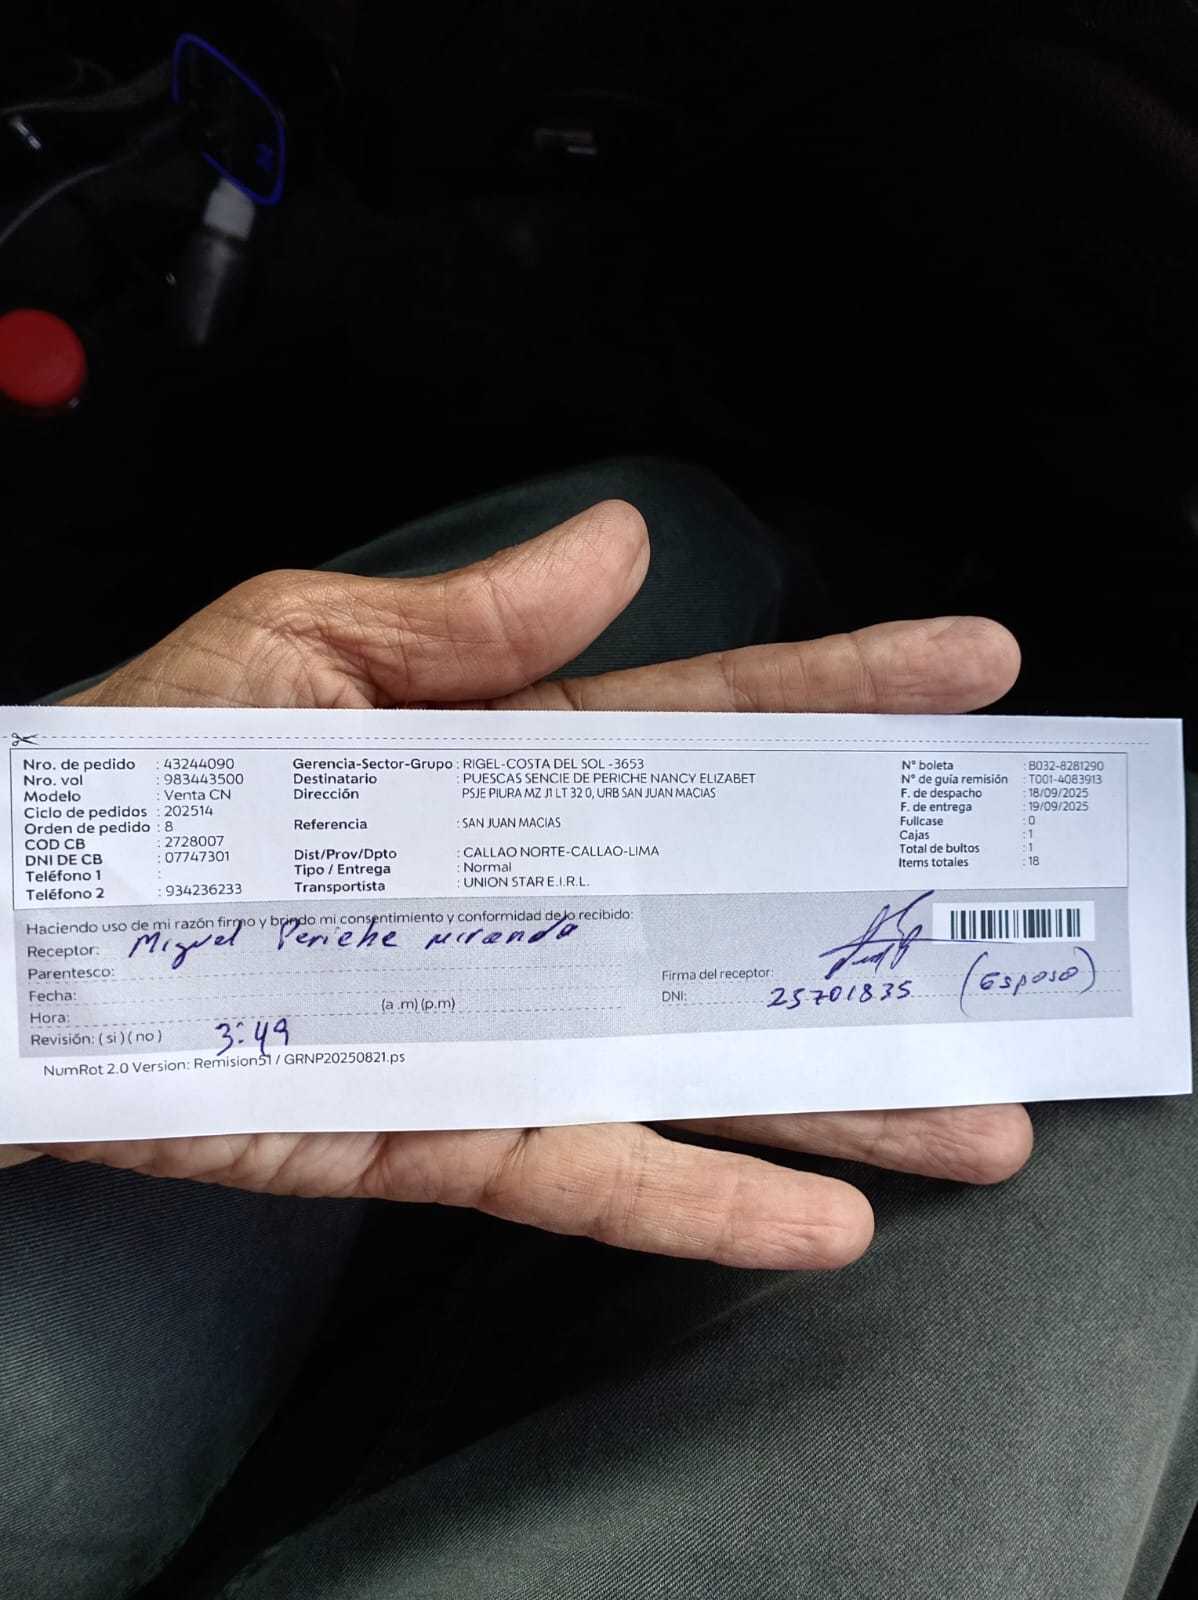 Nro. de pedido : 43244090
Nro. vol : 983443500
Modelo : Venta CN
Ciclo de pedidos : 202514
Orden de pedido : 8
COD CB : 2728007
DNI DE CB : 07747301
Teléfono 1 :
Teléfono 2 : 934236233
Gerencia-Sector-Grupo : RIGEL-COSTA DEL SOL -3653
Destinatario : PUESCAS SENCIE DE PERICHE NANCY ELIZABET
Dirección PSJE PIURA MZ J1 LT 32 0, URB SAN JUAN MACIAS
Referencia : SAN JUAN MACIAS
Dist/Prov/Dpto : CALLAO NORTE-CALLAO-LIMA
Tipo / Entrega : Normal
Transportista : UNION STAR E.I.R.L.
N° boleta : B032-8281290
N° de guía remisión : T001-4083913
F. de despacho : 18/09/2025
F. de entrega : 19/09/2025
Fullcase : 0
Cajas : 1
Total de bultos : 1
Items totales : 18
Haciendo uso de mi razón firmo y brindo mi consentimiento y conformidad de lo recibido:
Receptor: Miguel Periche Miranda
Parentesco:
Fecha:
Hora: (a .m) (p.m)
Revisión: ( si ) ( no ) 3:49
Firma del receptor:
DNI: 25701835 (Esposo)
NumRot 2.0 Version: Remision51 / GRNP20250821.ps